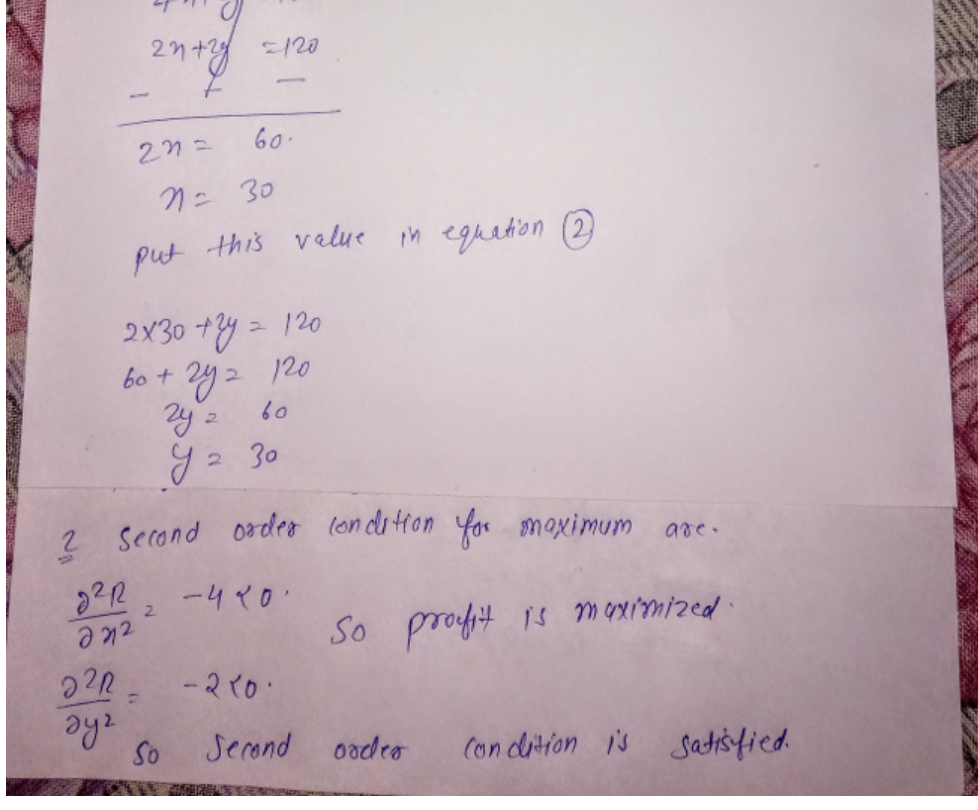 2x+2y =120
- + -
2x = 60.
x = 30
put this value in equation ②
2×30 +2y = 120
60 + 2y = 120
2y = 60
y = 30
2 Second order condition for maximum are.
∂²π/∂x² = -4<0.
So profit is maximized.
∂²π/∂y² = -2<0.
So Second order condition is satisfied.